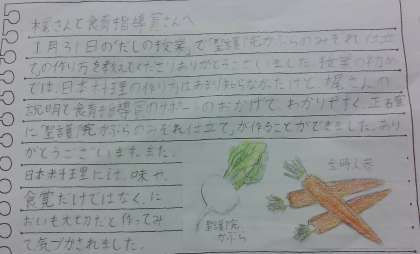 梶さんと食育指導員さんへ
1月31日の「だしの授業」で「聖護院かぶらのみぞれ仕立
て」の作り方を教えてくださりありがとうございました。授業の初め
では、日本料理の作り方はあまり知らなかったけど、梶さんの
説明と食育指導員のサポートのおかげで、わかりやすく、正確
に「聖護院かぶらのみぞれ仕立て」が作ることができました。あり
がとうございます。また、
日本料理には、味や、
食感だけではなく、に
おいも大切だと作ってみ
て気づかされました。
聖護院
かぶら
金時人参